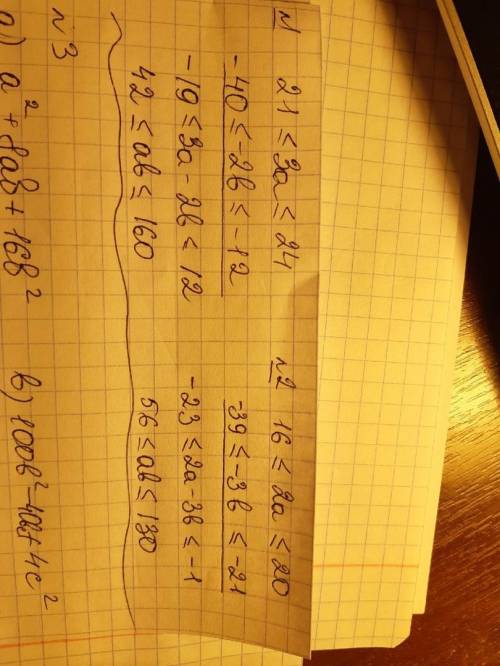 №1 21 ≤ 3a ≤ 24
-40 ≤ -2b ≤ -12
-19 ≤ 3a - 2b ≤ 12
42 ≤ ab ≤ 160
№2 16 ≤ 2a ≤ 20
-39 ≤ -3b ≤ -21
-23 ≤ 2a - 3b ≤ -1
56 ≤ ab ≤ 130
№3
а) a² + 8ab + 16b² в) 100b² - 40bc + 4c²